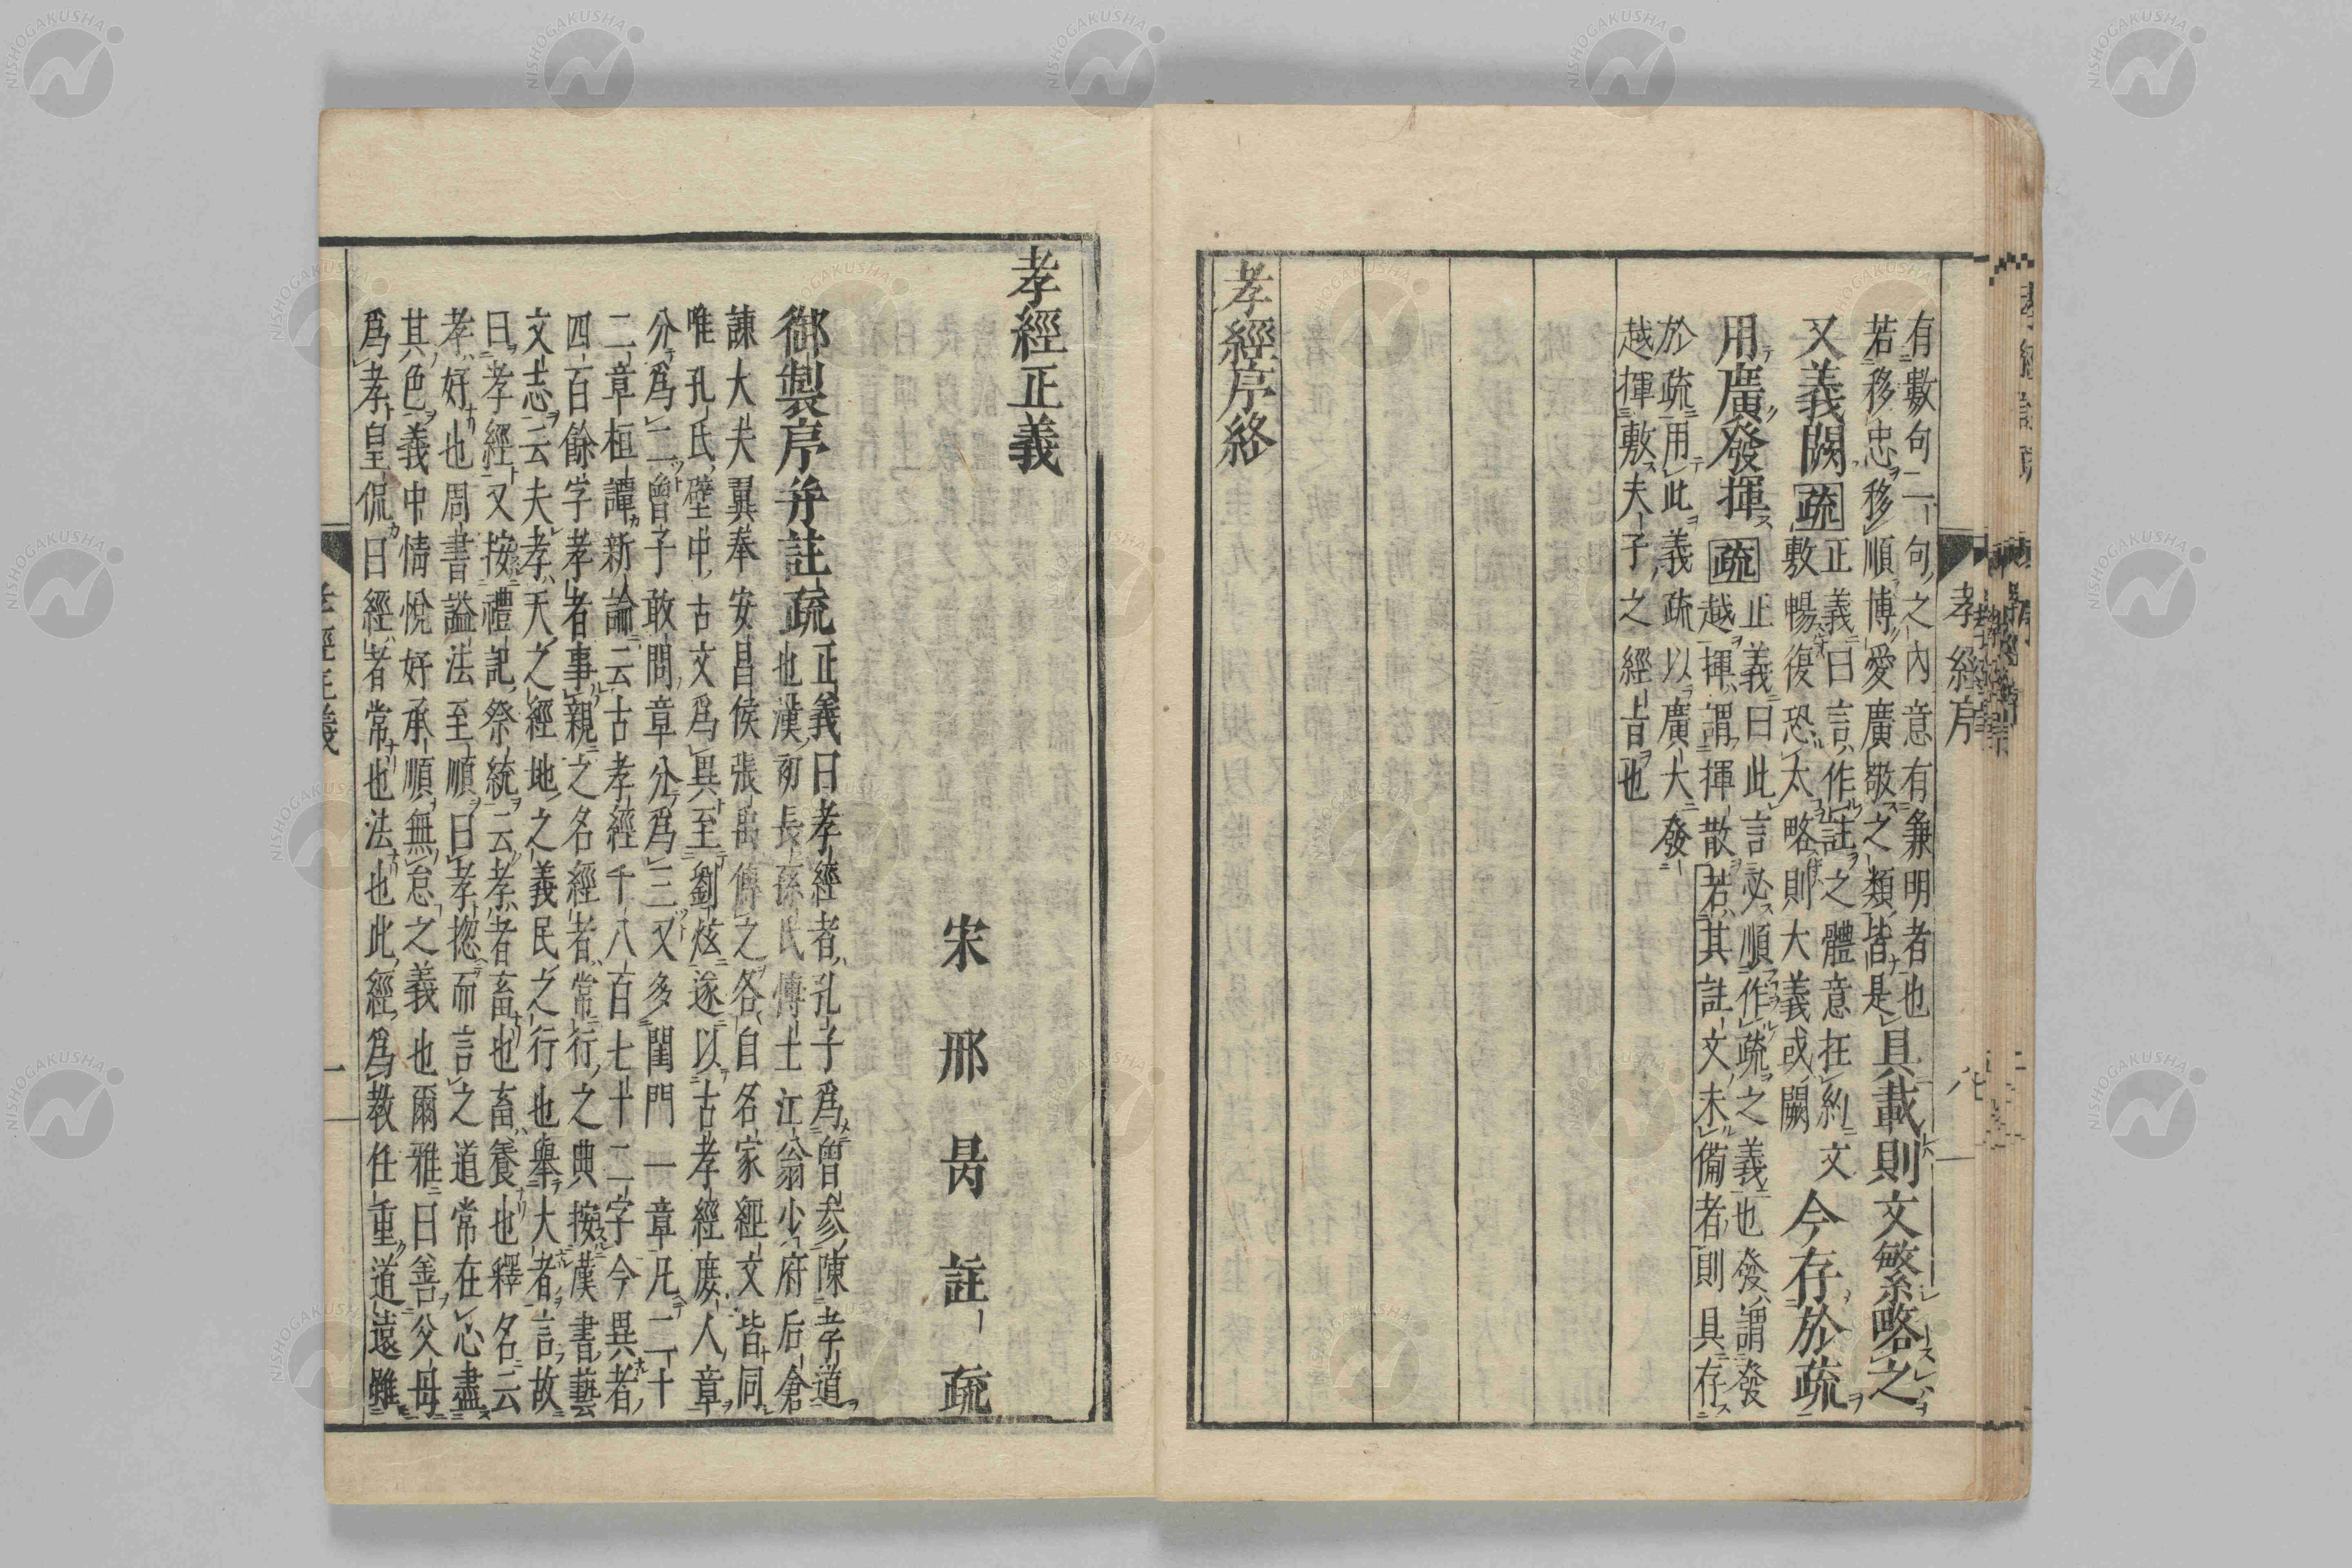 有數句一句之內意有兼明者也
若移忠移順博愛廣敬之類皆是具載則文繁略之
又義闕疏正義曰言作註之體意在約文
敷暢復恐太略則大義或闕今存於疏
用廣發揮疏正義曰此言必順作疏之義也發謂發
越揮謂揮散若其註文未備者則具存
於疏用此義疏以廣大發
越揮敷夫子之經旨也
孝經序終
孝經序
八
孝經正義
宋邢昺註疏
御製序并註疏正義曰孝經者孔子爲曾參陳孝道
也漢初長孫氏博士江翁少府后倉
諫大夫翼奉安昌侯張禹傳之各自名家經文皆同
唯孔氏壁中古文爲異至劉炫遂以古孝經庶人章
分爲二曾子敢問章分爲三又多閨門一章凡二十
二章桓譚新論云古孝經千八百七十二字今異者
四百餘字孝者事親之名經者常行之典按漢書藝
文志云夫孝天之經地之義民之行也舉大者言故
曰孝經又按禮記祭統云孝者畜也畜養也釋名云
孝好也周書謚法至順曰孝揔而言之道常在心盡
其色義中情悅好承順無怠之義也爾雅曰善父母
爲孝皇侃曰經者常也法也此經爲教任重道遠雖
孝經正義
一
NISHOGAKUSHA